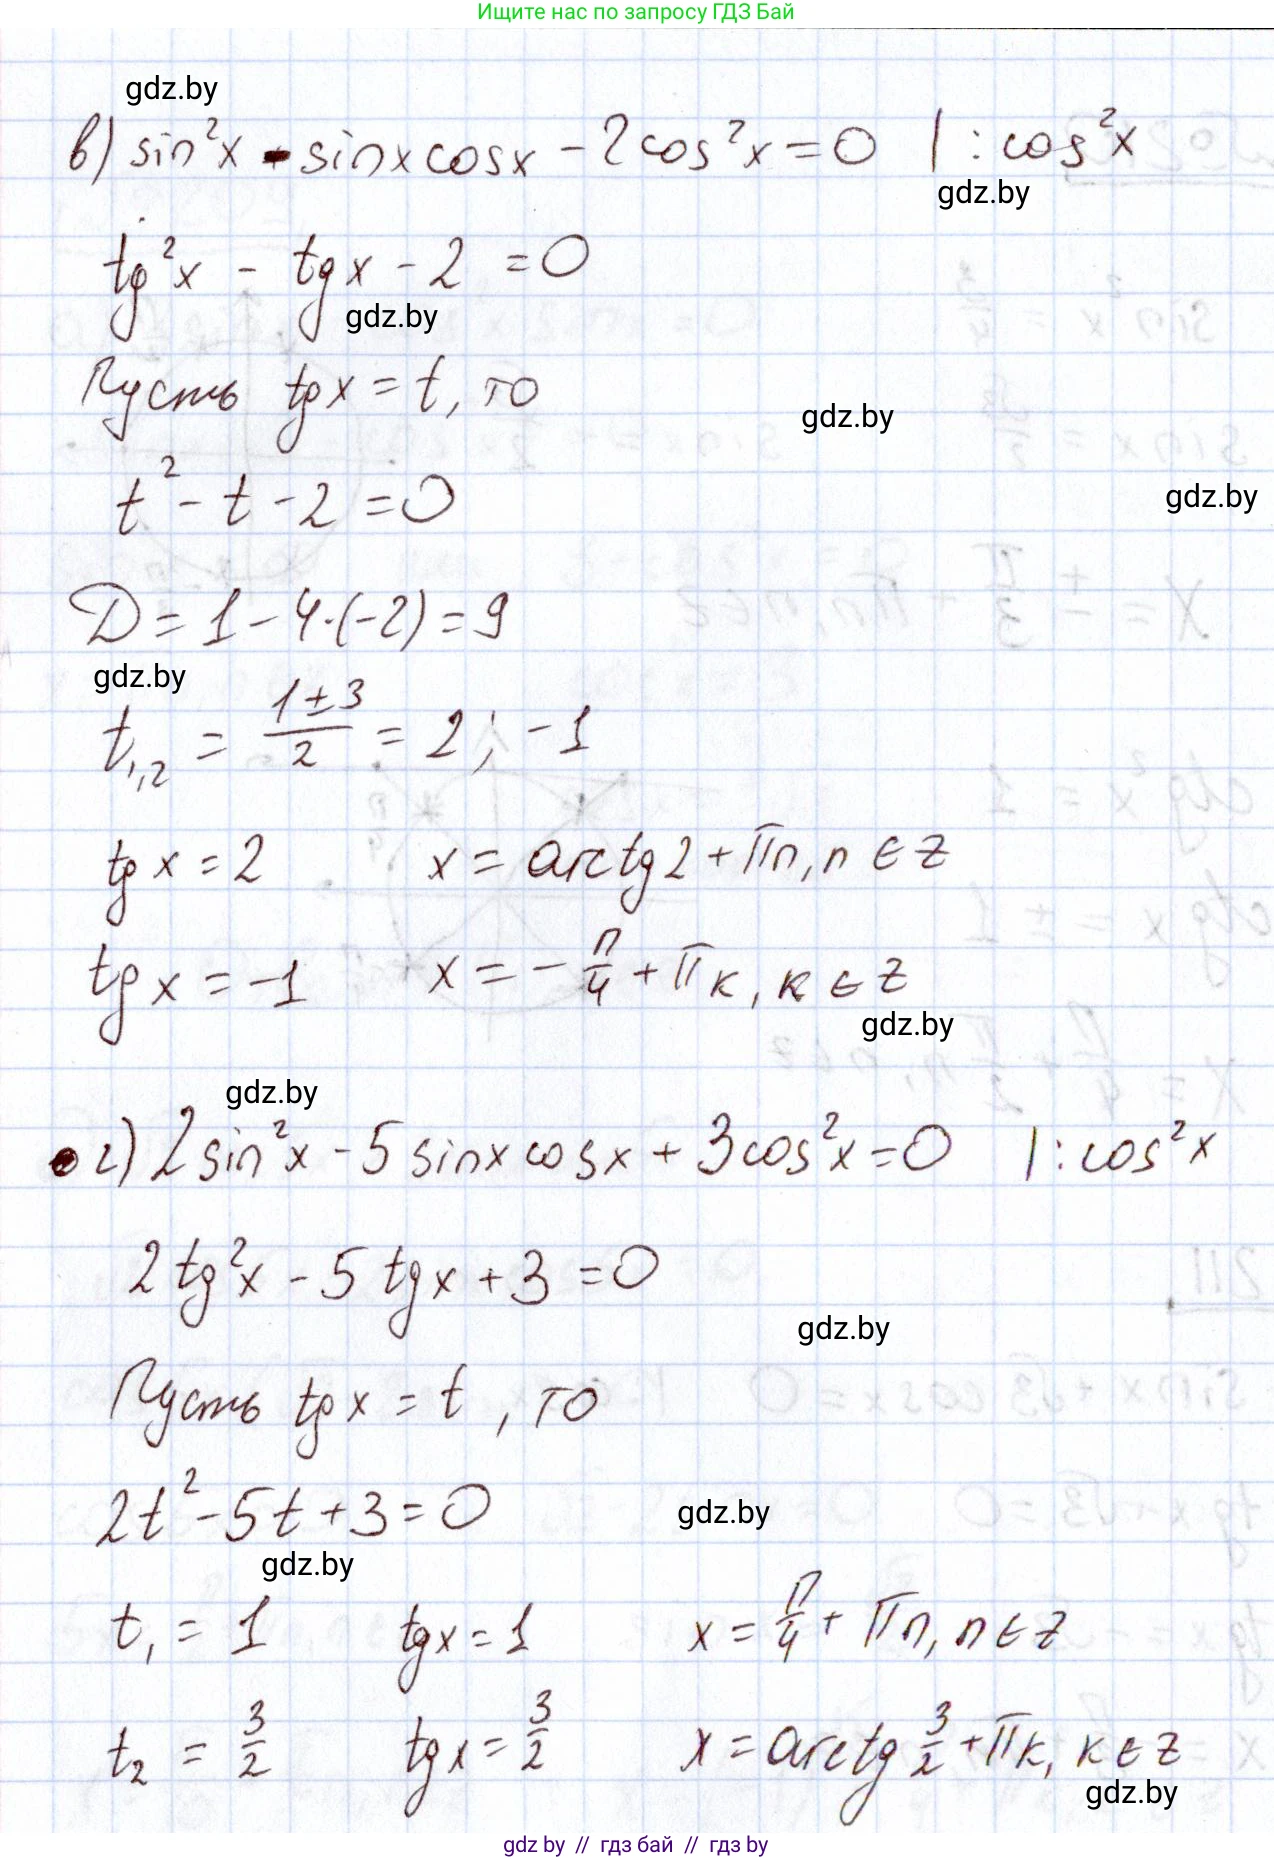 Ищите нас по запросу ГДЗ Бай
gdz.by
в) sin²x - sinx cosx - 2cos²x = 0 | : cos²x
gdz.by
tg²x - tgx - 2 = 0
gdz.by
Пусть tgx = t, то
gdz.by
t² - t - 2 = 0
gdz.by
D = 1 - 4·(-2) = 9
gdz.by
t₁,₂ = (1±3)/2 = 2; -1
tgx = 2 x = arctg2 + πn, n ∈ z
tgx = -1 x = -π/4 + πk, k ∈ z
gdz.by
gdz.by
г) 2sin²x - 5sinx cosx + 3cos²x = 0 | : cos²x
2tg²x - 5tgx + 3 = 0
gdz.by
Пусть tgx = t, то
2t² - 5t + 3 = 0
gdz.by
gdz.by
t₁ = 1 tgx = 1 x = π/4 + πn, n ∈ z
t₂ = 3/2 tgx = 3/2 x = arctg 3/2 + πk, k ∈ z
gdz.by
gdz by // гдз бай // gdz by